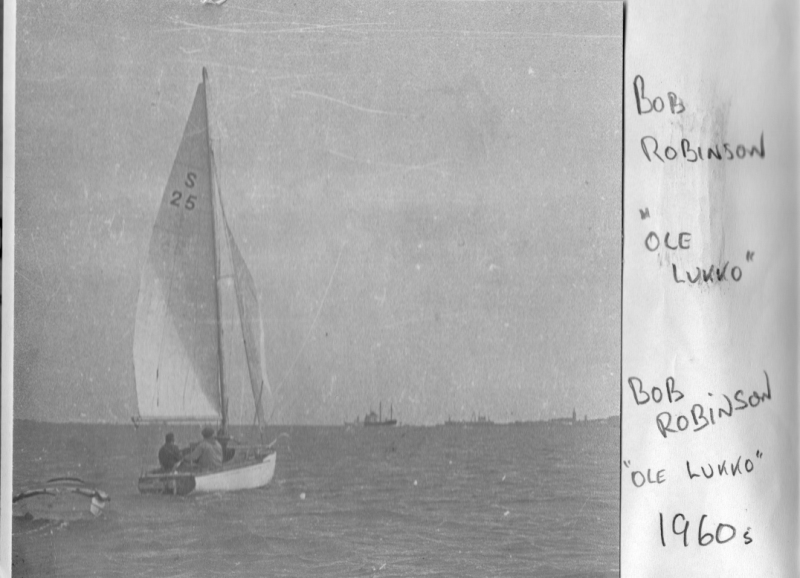 S
25
BOB
ROBINSON
"OLE
LUKKO"
BOB
ROBINSON
"OLE LUKKO"
1960s